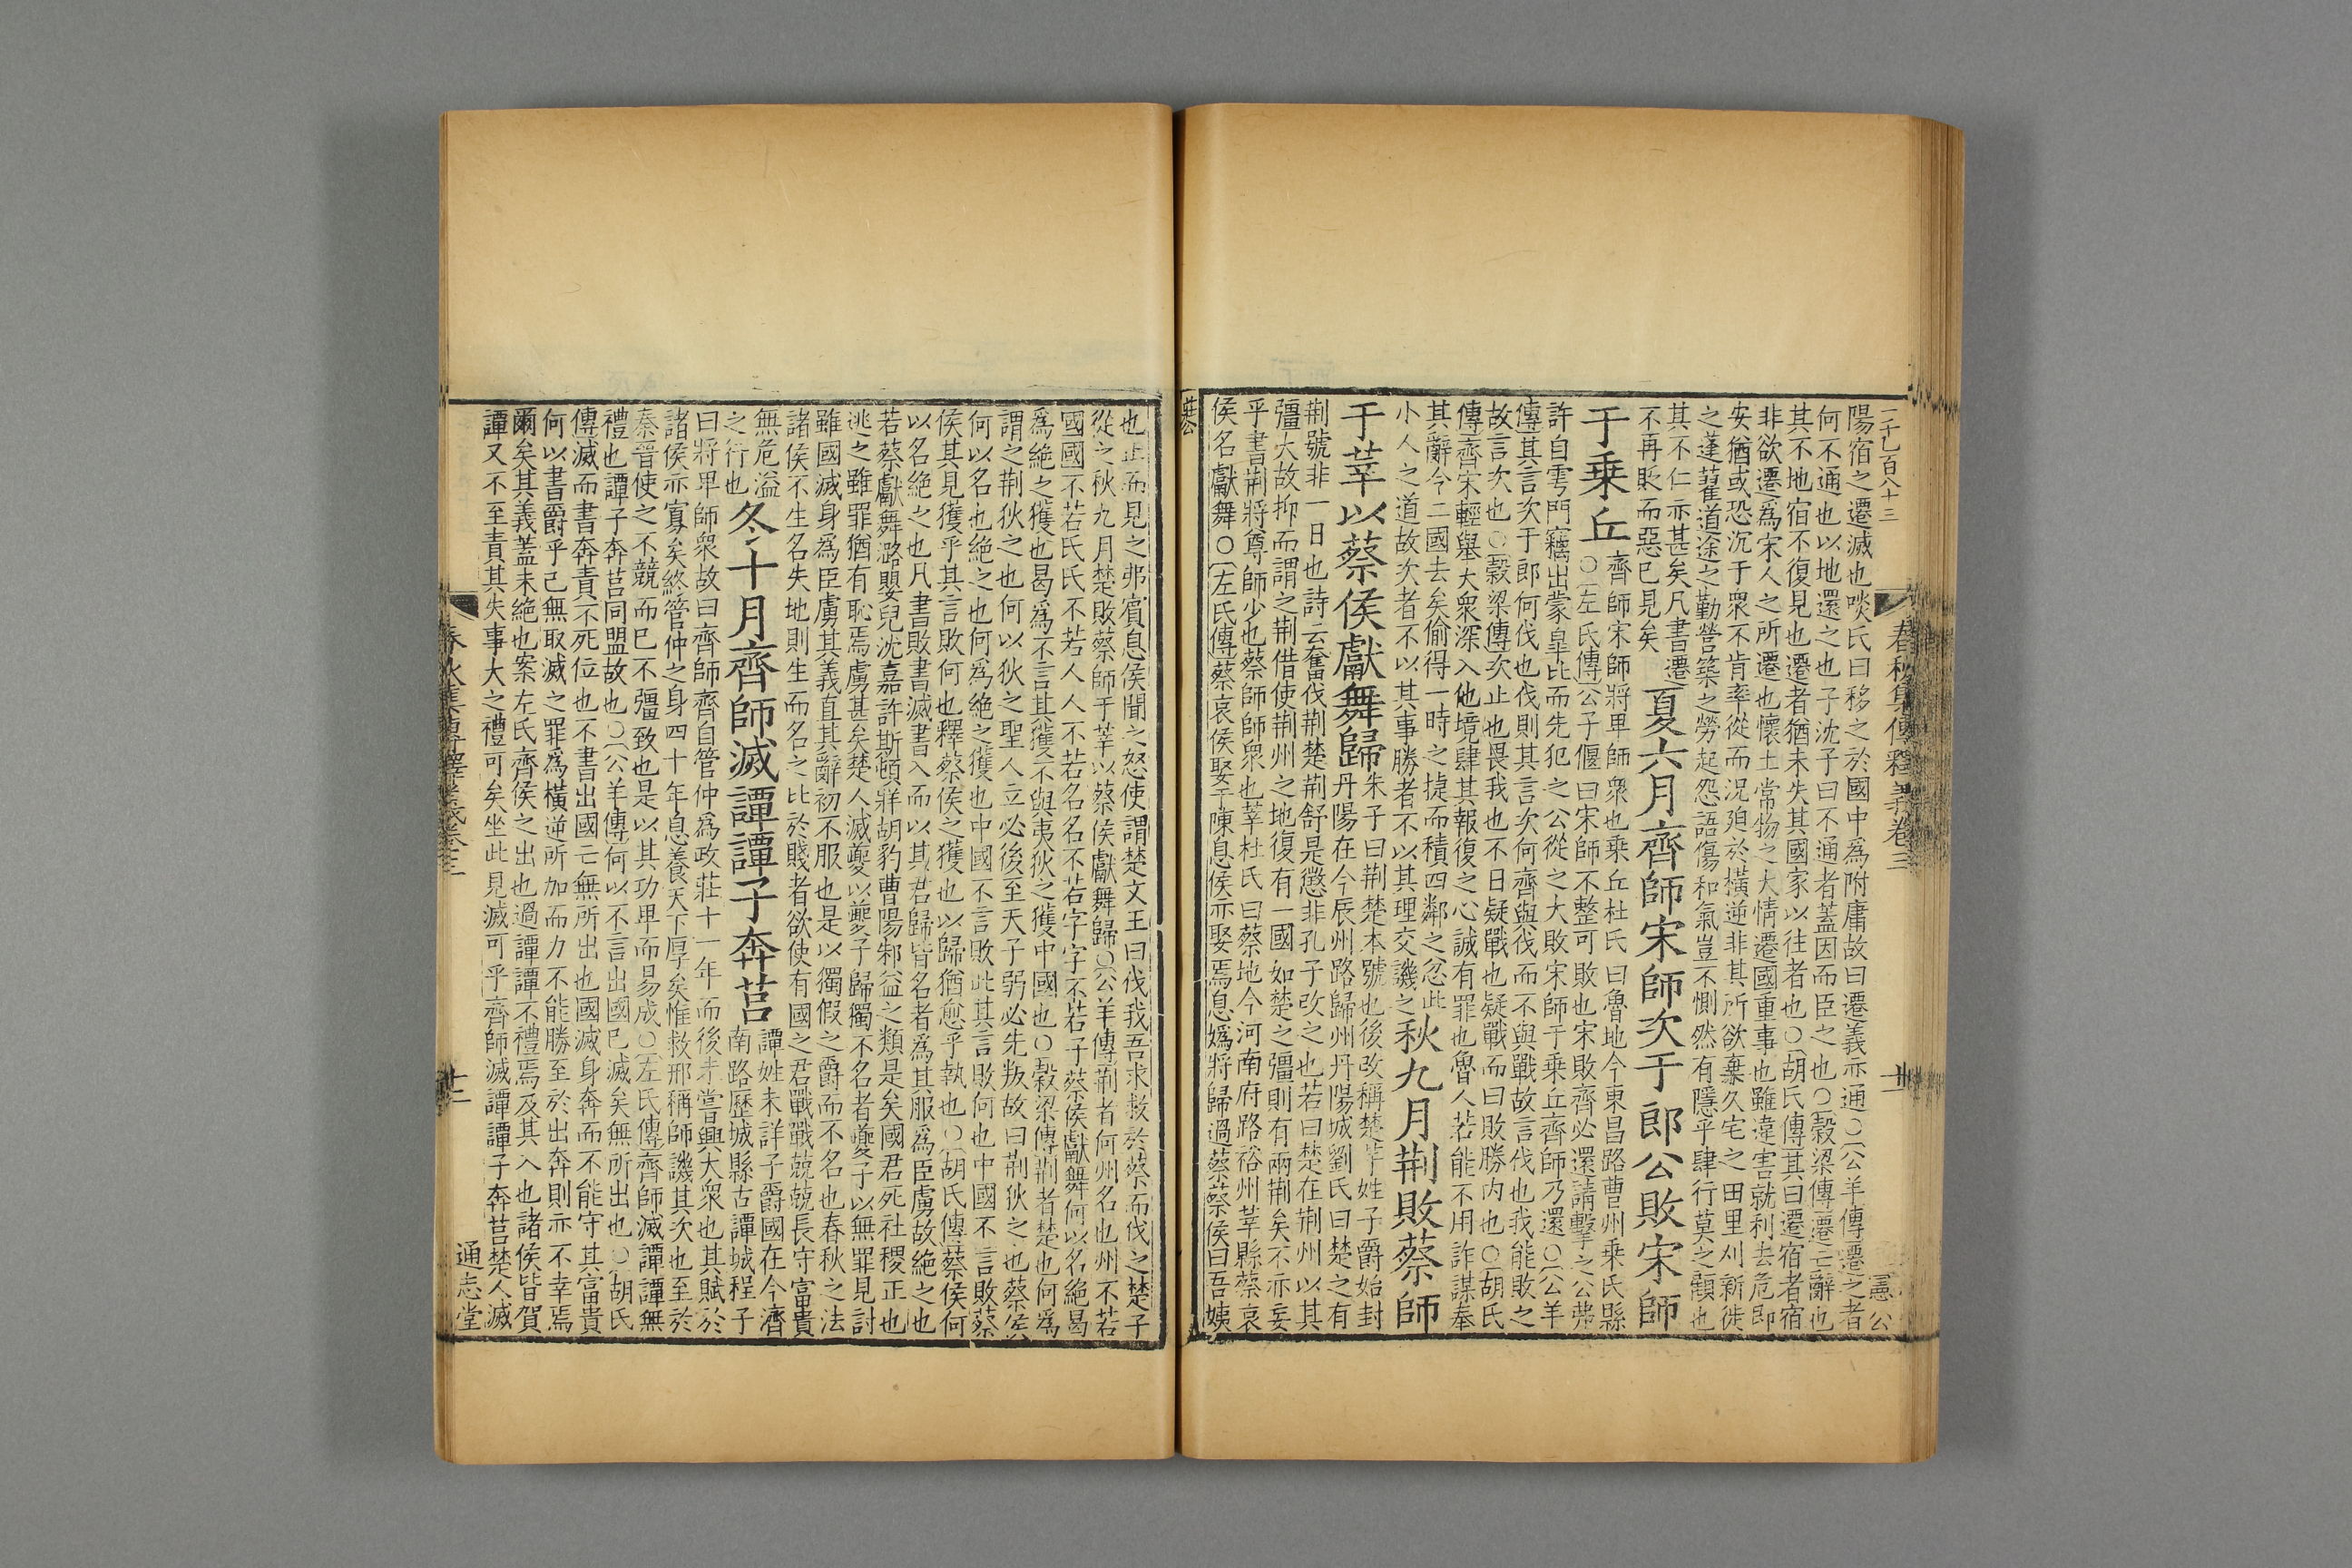 春秋集傳釋義卷三
陽宿之遷滅也啖氏曰移之於國中為附庸故曰遷義亦通○公羊傳遷之者
何不通也以地還之也子沈子曰不通者蓋因而臣之也○穀梁傳遷亡辭也
其不地宿不復見也遷者猶未失其國家以往者也○胡氏傳其曰遷宿者宿
非欲遷為宋人之所遷也懷土常物之大情遷國重事也雖違害就利去危即
安猶或恐沉于衆不肯率從而況迫於橫逆非其所欲棄久宅之田里刈新徙
之蓬藋道途之勤營築之勞起怨諮傷和氣豈不惻然有隱乎肆行莫之顧也
其不仁亦甚矣凡書遷
不再貶而惡已見矣
夏六月齊師宋師次于郎公敗宋師
于乗丘
齊師宋師將卑師衆也乗丘杜氏曰魯地今東昌路曹州乗氏縣
○左氏傳公子偃曰宋師不整可敗也宋敗齊必還請擊之公弗
許自雩門竊出蒙臯比而先犯之公從之大敗宋師于乗丘齊師乃還○公羊
傳其言次于郎何伐也伐則其言次何齊與伐而不與戰故言伐也我能敗之
故言次也○穀梁傳次止也畏我也不日疑戰也疑戰而曰敗勝内也○胡氏
傳齊宋輕舉大衆深入他境肆其報復之心誠有罪也魯人若能不用詐謀奉
其辭令二國去矣偷得一時之捷而積四鄰之忿此
小人之道故次者不以其事勝者不以其理交譏之
秋九月荆敗蔡師
于莘以蔡侯獻舞歸
朱子曰荆楚本號也後改稱楚芉姓子爵始封
丹陽在今辰州路歸州丹陽城劉氏曰楚之有
荆號非一日也詩云奮伐荆楚荆舒是懲非孔子改之也若曰楚在荆州以其
彊大故抑而謂之荆借使荆州之地復有一國如楚之彊則有兩荆矣不亦妄
乎書荆將尊師少也蔡師師衆也莘杜氏曰蔡地今河南府路裕州莘縣蔡哀
侯名獻舞○左氏傳蔡哀侯娶于陳息侯亦娶焉息嬀將歸過蔡蔡侯曰吾姨
也止而見之弗賔息侯聞之怒使謂楚文王曰伐我吾求救於蔡而伐之楚子
從之秋九月楚敗蔡師于莘以蔡侯獻舞歸○公羊傳荆者何州名也州不若
國國不若氏氏不若人人不若名名不若字字不若子蔡侯獻舞何以名絶曷
為絶之獲也曷為不言其獲不與夷狄之獲中國也○穀梁傳荆者楚也何為
謂之荆狄之也何以狄之聖人立必後至天子弱必先叛故曰荆狄之也蔡侯
何以名也絶之也何為絶之獲也中國不言敗此其言敗何也中國不言敗蔡
侯其見獲乎其言敗何也釋蔡侯之獲也以歸猶愈乎執也○胡氏傳蔡侯何
以名絶之也凡書敗書滅書入而以其君歸皆名者為其服為臣虜故絶之也
若蔡獻舞潞嬰兒沈嘉許斯頓牂胡豹曹陽邾益之類是矣國君死社稷正也
逃之雖罪猶有恥焉虜甚矣楚人滅夔以夔子歸獨不名者夔子以無罪見討
雖國滅身為臣虜其義直其辭初不服也是以獨假之爵而不名也春秋之法
諸侯不生名失地則生而名之比於賤者欲使有國之君戰戰兢兢長守富貴
無危溢
之行也
冬十月齊師滅譚譚子奔莒
譚姓未詳子爵國在今濟
南路歷城縣古譚城程子
曰將卑師衆故曰齊師齊自管仲為政莊十一年而後未嘗興大衆也其賦於
諸侯亦寡矣終管仲之身四十年息養天下厚矣惟救邢稱師譏其次也至於
秦晉使之不競而已不彊致也是以其功卑而易成○左氏傳齊師滅譚譚無
禮也譚子奔莒同盟故也○公羊傳何以不言出國已滅矣無所出也○胡氏
傳滅而書奔責不死位也不書出國亡無所出也國滅身奔而不能守其富貴
何以書爵乎已無取滅之罪為橫逆所加而力不能勝至於出奔則亦不幸焉
爾矣其義蓋未絶也案左氏齊侯之出也過譚譚不禮焉及其入也諸侯皆賀
譚又不至責其失事大之禮可矣坐此見滅可乎齊師滅譚譚子奔莒楚人滅
春秋集傳釋義卷三
十二
通志堂